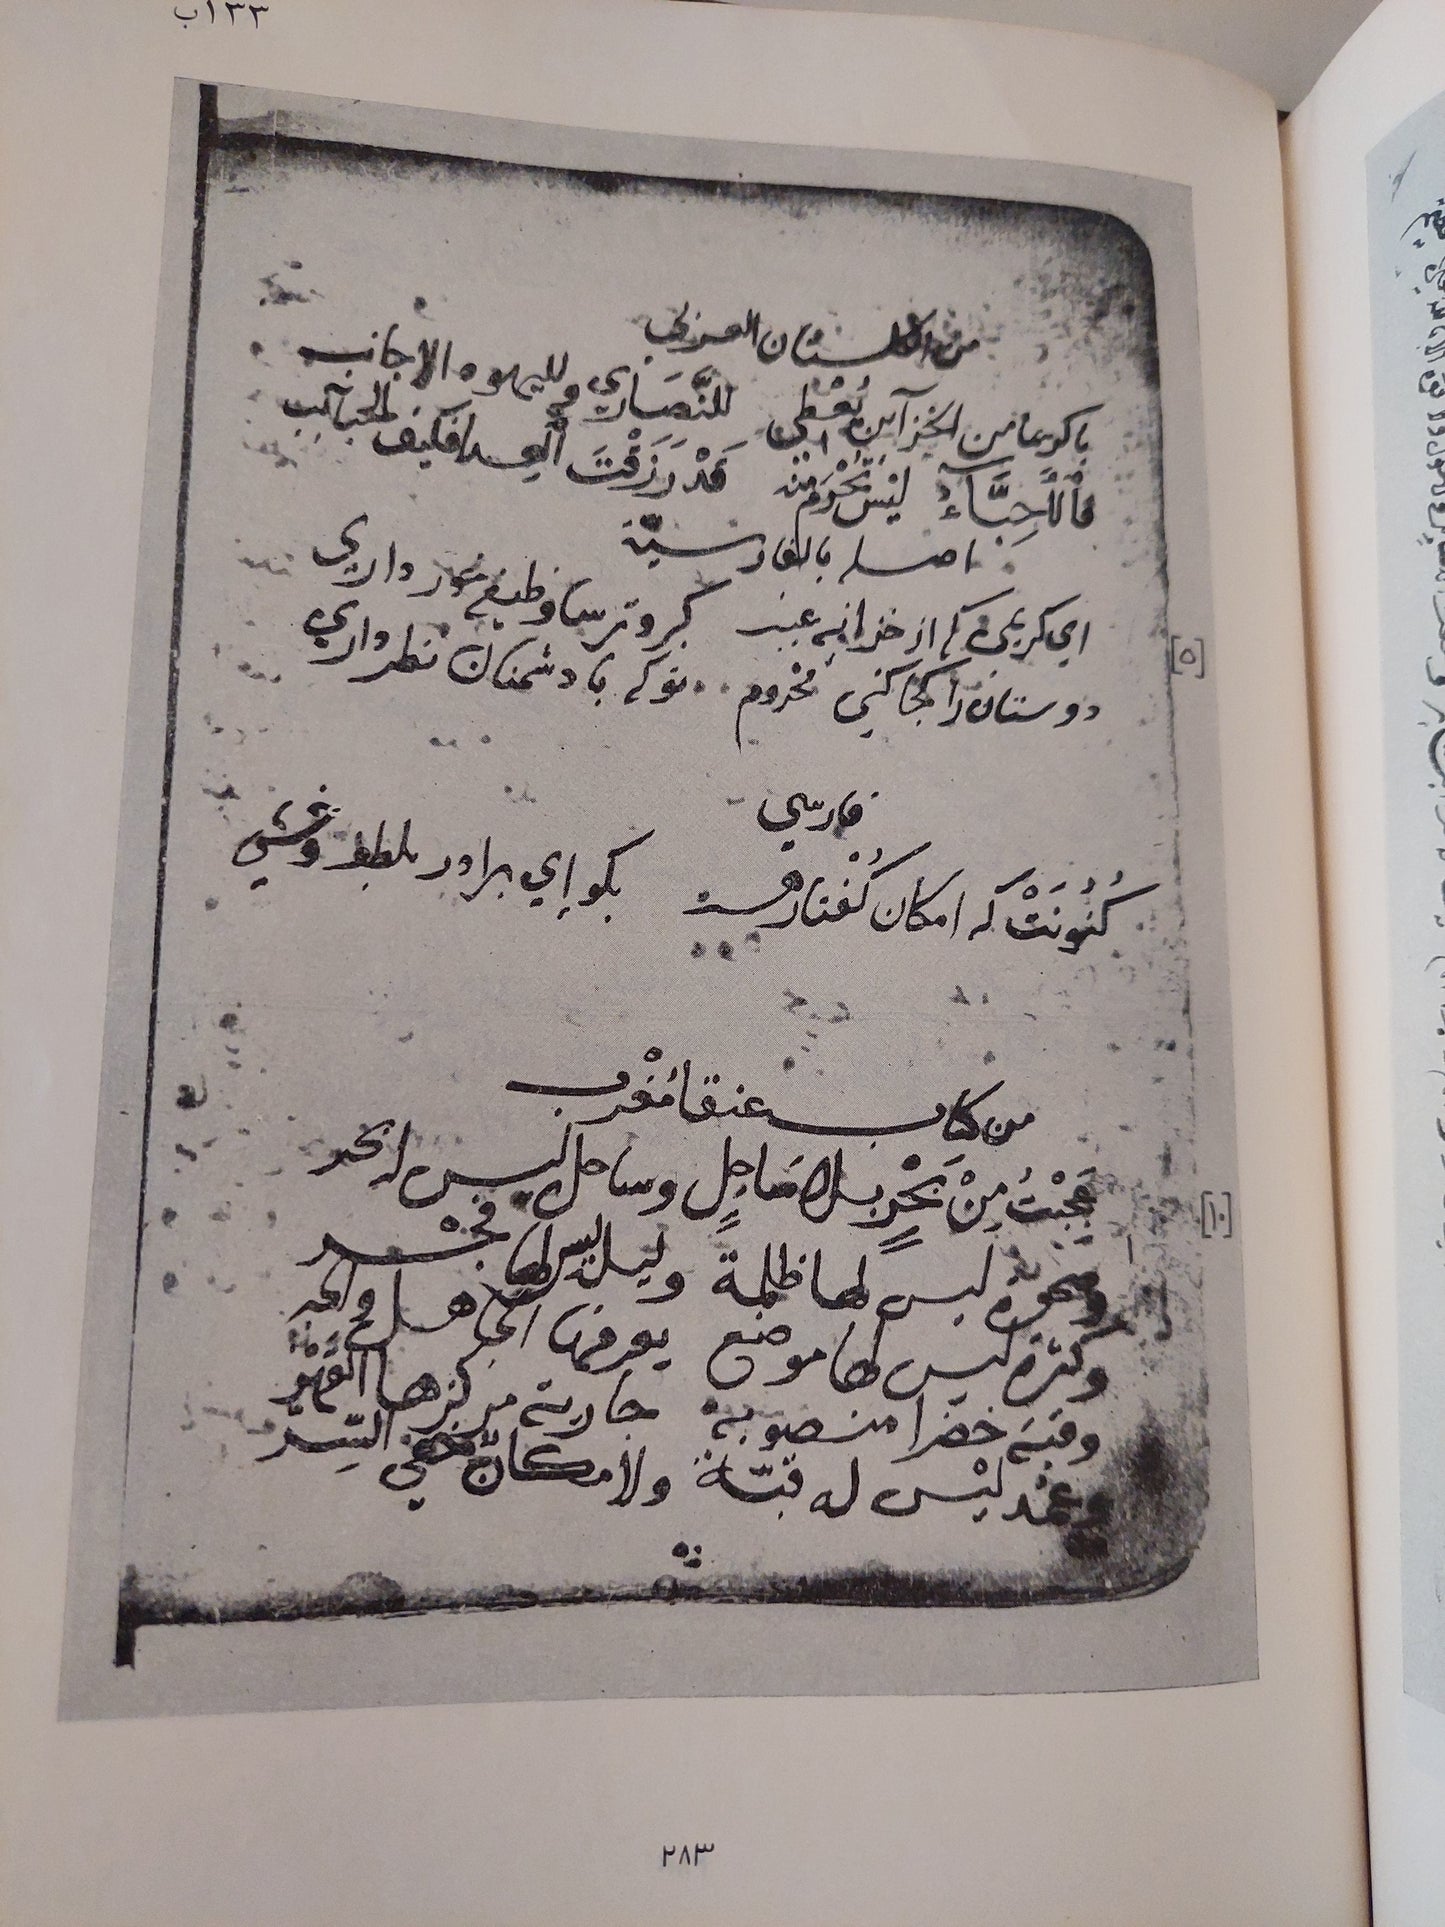 ١٣٣ب
من الكلستان العربي
ياكريما من الخزآئن يُعْطي للنَّصَاري ولليهود الاجانب
فالْلاَحِبَّآءُ لَيْسَ تُحْرَم منه قَدْ رَزَقْتَ الْعِدا فكيف الحبآئب
اصله بالفارسيّة
اي كريمي كه از خزانه غيب كبر وترسا وظيفه خور داري
دوستان را كجا كني مَحْروم توكه با دشمنان نظر داري
[٥]
فارسي
كُنُونَتْ كه امكان كُفْتار هست بكو اي برادر بلطف وخشي
من كتاب عنقا مُغْرب
عَجِبْتُ مِنْ بَحْرٍ بلا سَاحِلٍ وساحل ليس له بحر
[١٠]
وضحوة ليس لها ظلمة وليلة ليس لها فَجْر
وكرة ليس لها موضع يعرفها الجاهل والحبر
وقبّة خضرا منصوبة جارية مركزها القَهْر
وعَمْد لَيْس له قبّة ولا مكان خفي السِّر
٢٨٣